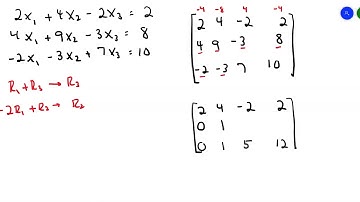 2x₁ + 4x₂ - 2x₃ = 2
4x₁ + 9x₂ - 3x₃ = 8
-2x₁ - 3x₂ + 7x₃ = 10
R₁ + R₃ → R₃
-2R₁ + R₂ → R₂
-4 -8 4 -4
2 4 -2 2
4 9 -3 8
-2 -3 7 10
2 4 -2 2
0 1
0 1 5 12